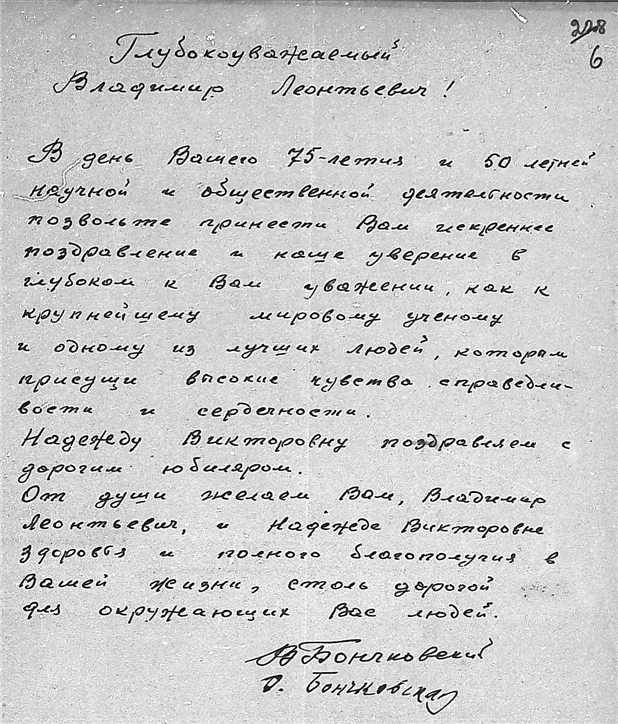 228
6
Глубокоуважаемый
Владимир Леонтьевич!
В день Вашего 75-летия и 50 летней
научной и общественной деятельности
позвольте принести Вам искреннее
поздравление и наше уверение в
глубоком к Вам уважении, как к
крупнейшему мировому ученому
и одному из лучших людей, которым
присущи высокие чувства справедли-
вости и сердечности.
Надежду Викторовну поздравляем с
дорогим юбиляром.
От души желаем Вам, Владимир
Леонтьевич, и Надежде Викторовне
здоровья и полного благополучия в
Вашей жизни, столь дорогой
для окружающих Вас людей.
В Бончковский
О. Бончковская